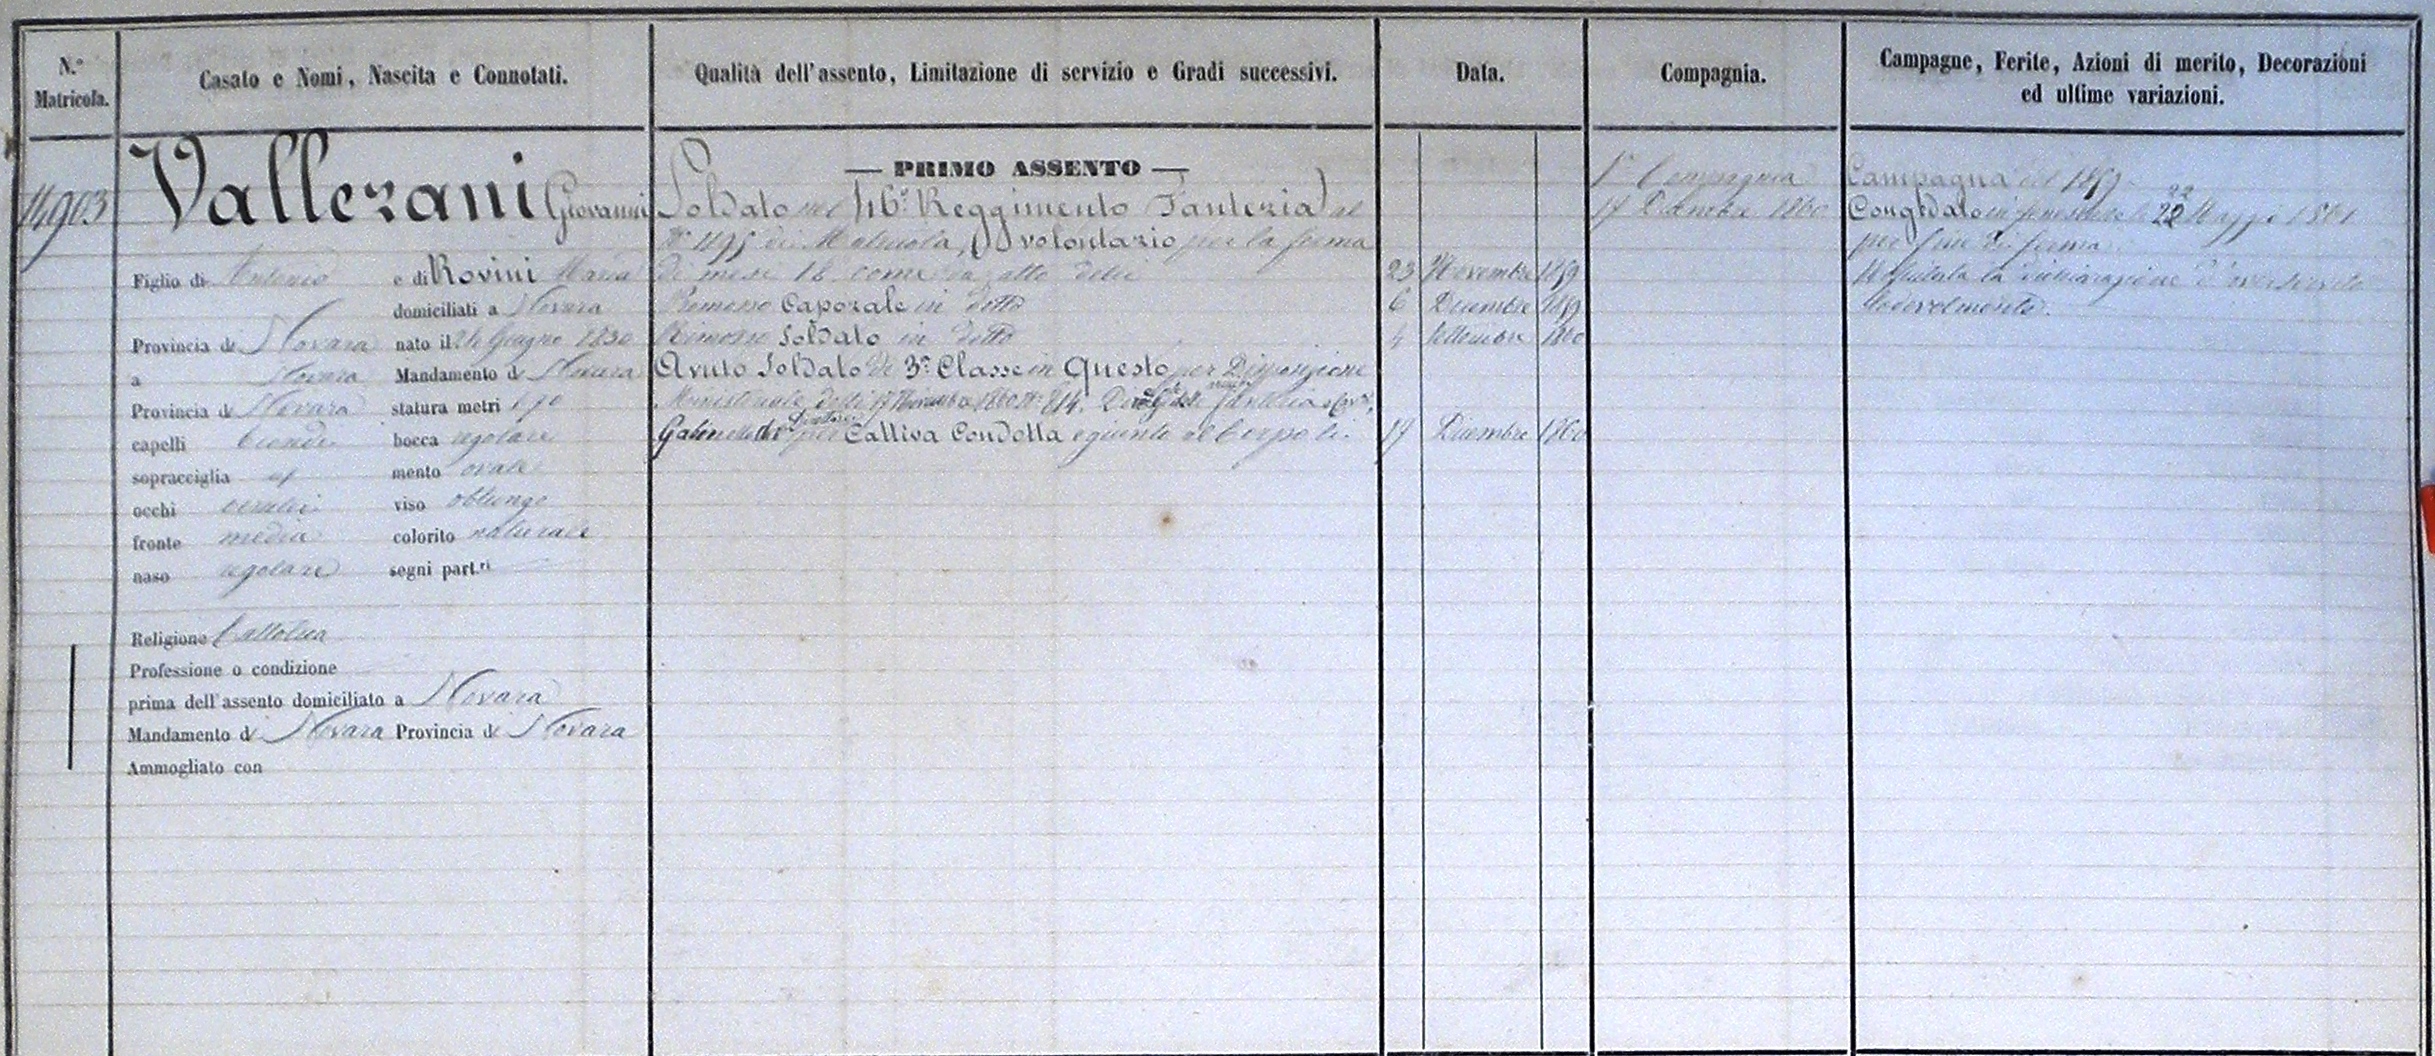 N.° Matricola.
Casato e Nomi, Nascita e Connotati.
Qualità dell'assento, Limitazione di servizio e Gradi successivi.
Data.
Compagnia.
Campagne, Ferite, Azioni di merito, Decorazioni
ed ultime variazioni.
14903
Vallezani Giovanni
Figlio di Antonio e di Rovini Maria
domiciliati a Novara
Provincia di Novara nato il 24 Giugno 1830
a Novara Mandamento di Novara
Provincia di Novara statura metri 1,70
capelli biondi bocca regolare
sopracciglia id mento ovale
occhi cerulei viso oblungo
fronte media colorito naturale
naso regolare segni part.ri
Religione Cattolica
Professione o condizione
prima dell'assento domiciliato a Novara
Mandamento di Novara Provincia di Novara
Ammogliato con
— PRIMO ASSENTO —
Soldato nel 16° Reggimento Fanteria al
N° 1195 di Matricola, volontario per la ferma
di mesi 18 come da atto delli 23 Novembre 1859
Promosso Caporale in detto 6 Dicembre 1859
Rimosso Soldato in detto 4 Settembre 1860
Avuto Soldato di 3a Classe in Questo per Disposizione
Ministeriale delli 17 Novembre 1860 N° 814. Fanteria
Gabinetto per Cattiva Condotta e giunto al Corpo li 17 Dicembre 1860
1a Compagnia
17 Dicembre 1860
Campagna del 1859
Congedato in 22 Maggio 1861
per fine di ferma
la dichiarazione d'aver servito
lodevolmente.